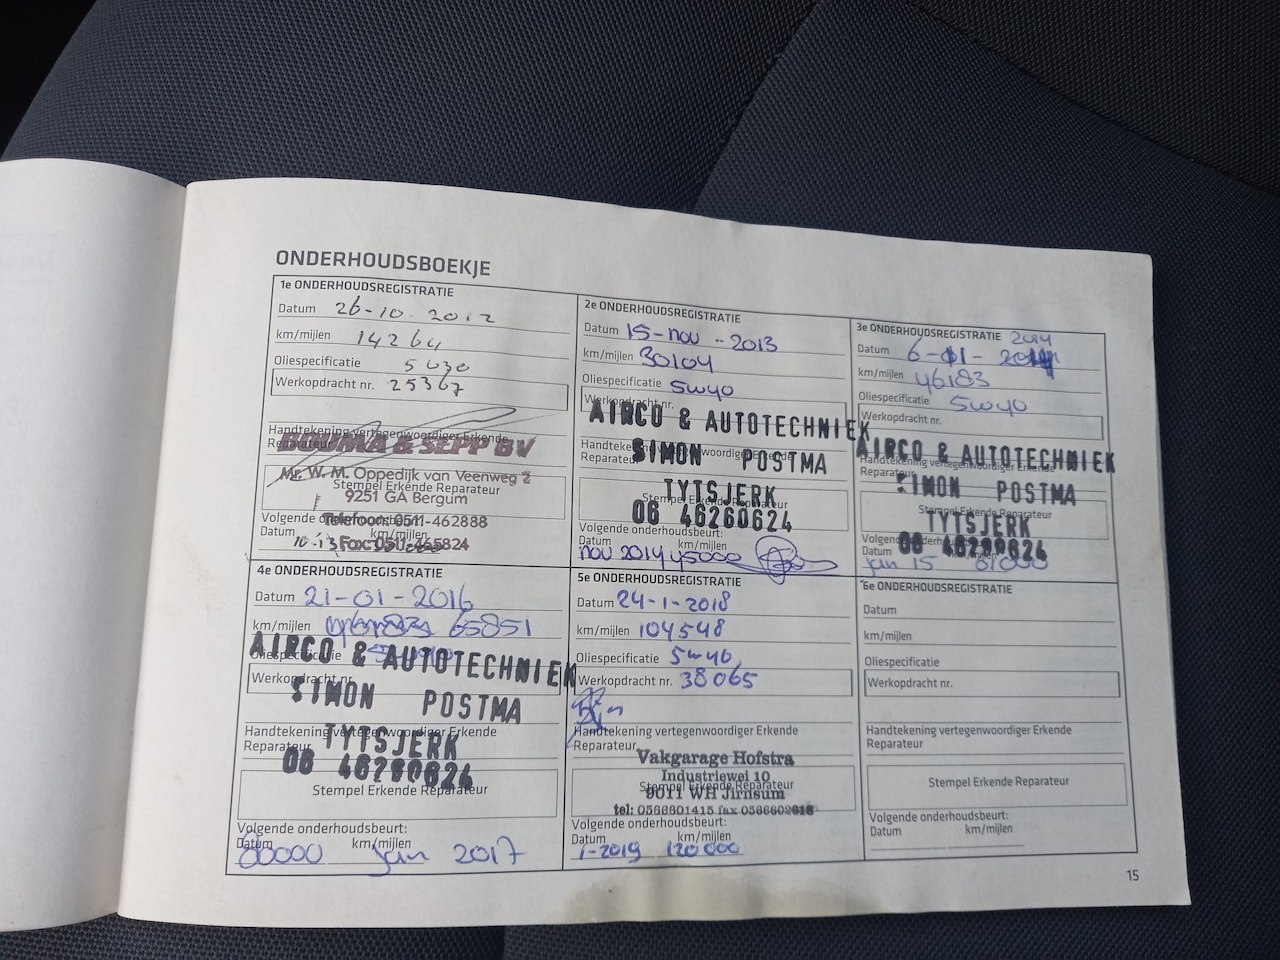 ONDERHOUDSBOEKJE
1e ONDERHOUDSREGISTRATIE
Datum 26-10-2012
km/mijlen 14264
Oliespecificatie 5w30
Werkopdracht nr. 25367
Handtekening vertegenwoordiger Erkende
Reparateur
BOUMA & SEPP BV
Mr. W. M. Oppedijk van Veenweg 2
Stempel Erkende Reparateur
9251 GA Bergum
Telefoon: 0511-462888
Fax: 0511-465824
Volgende onderhoudsbeurt:
Datum 10-13 km/mijlen
2e ONDERHOUDSREGISTRATIE
Datum 15-nov-2013
km/mijlen 30104
Oliespecificatie 5w40
Werkopdracht nr.
AIRCO & AUTOTECHNIEK
Handtekening vertegenwoordiger Erkende
Reparateur
SIMON POSTMA
TYTSJERK
Stempel Erkende Reparateur
06 46260624
Volgende onderhoudsbeurt:
Datum km/mijlen
nov 2014 45000
3e ONDERHOUDSREGISTRATIE 2014
Datum 6-01-2014
km/mijlen 46183
Oliespecificatie 5w40
Werkopdracht nr.
AIRCO & AUTOTECHNIEK
Handtekening vertegenwoordiger Erkende
Reparateur
SIMON POSTMA
Stempel Erkende Reparateur
TYTSJERK
06 46260624
Volgende onderhoudsbeurt:
Datum km/mijlen
jan 15
4e ONDERHOUDSREGISTRATIE
Datum 21-01-2016
km/mijlen 65851
Oliespecificatie
AIRCO & AUTOTECHNIEK
Werkopdracht nr.
SIMON POSTMA
Handtekening vertegenwoordiger Erkende
Reparateur
TYTSJERK
06 46260624
Stempel Erkende Reparateur
Volgende onderhoudsbeurt:
Datum km/mijlen
80000 jan 2017
5e ONDERHOUDSREGISTRATIE
Datum 24-1-2018
km/mijlen 104548
Oliespecificatie 5w40
Werkopdracht nr. 38065
Handtekening vertegenwoordiger Erkende
Reparateur
Vakgarage Hofstra
Industriewei 10
Stempel Erkende Reparateur
9011 WH Jirnsum
tel: 0566601415 fax 0566602618
Volgende onderhoudsbeurt:
Datum km/mijlen
1-2019 120000
6e ONDERHOUDSREGISTRATIE
Datum
km/mijlen
Oliespecificatie
Werkopdracht nr.
Handtekening vertegenwoordiger Erkende
Reparateur
Stempel Erkende Reparateur
Volgende onderhoudsbeurt:
Datum km/mijlen
15